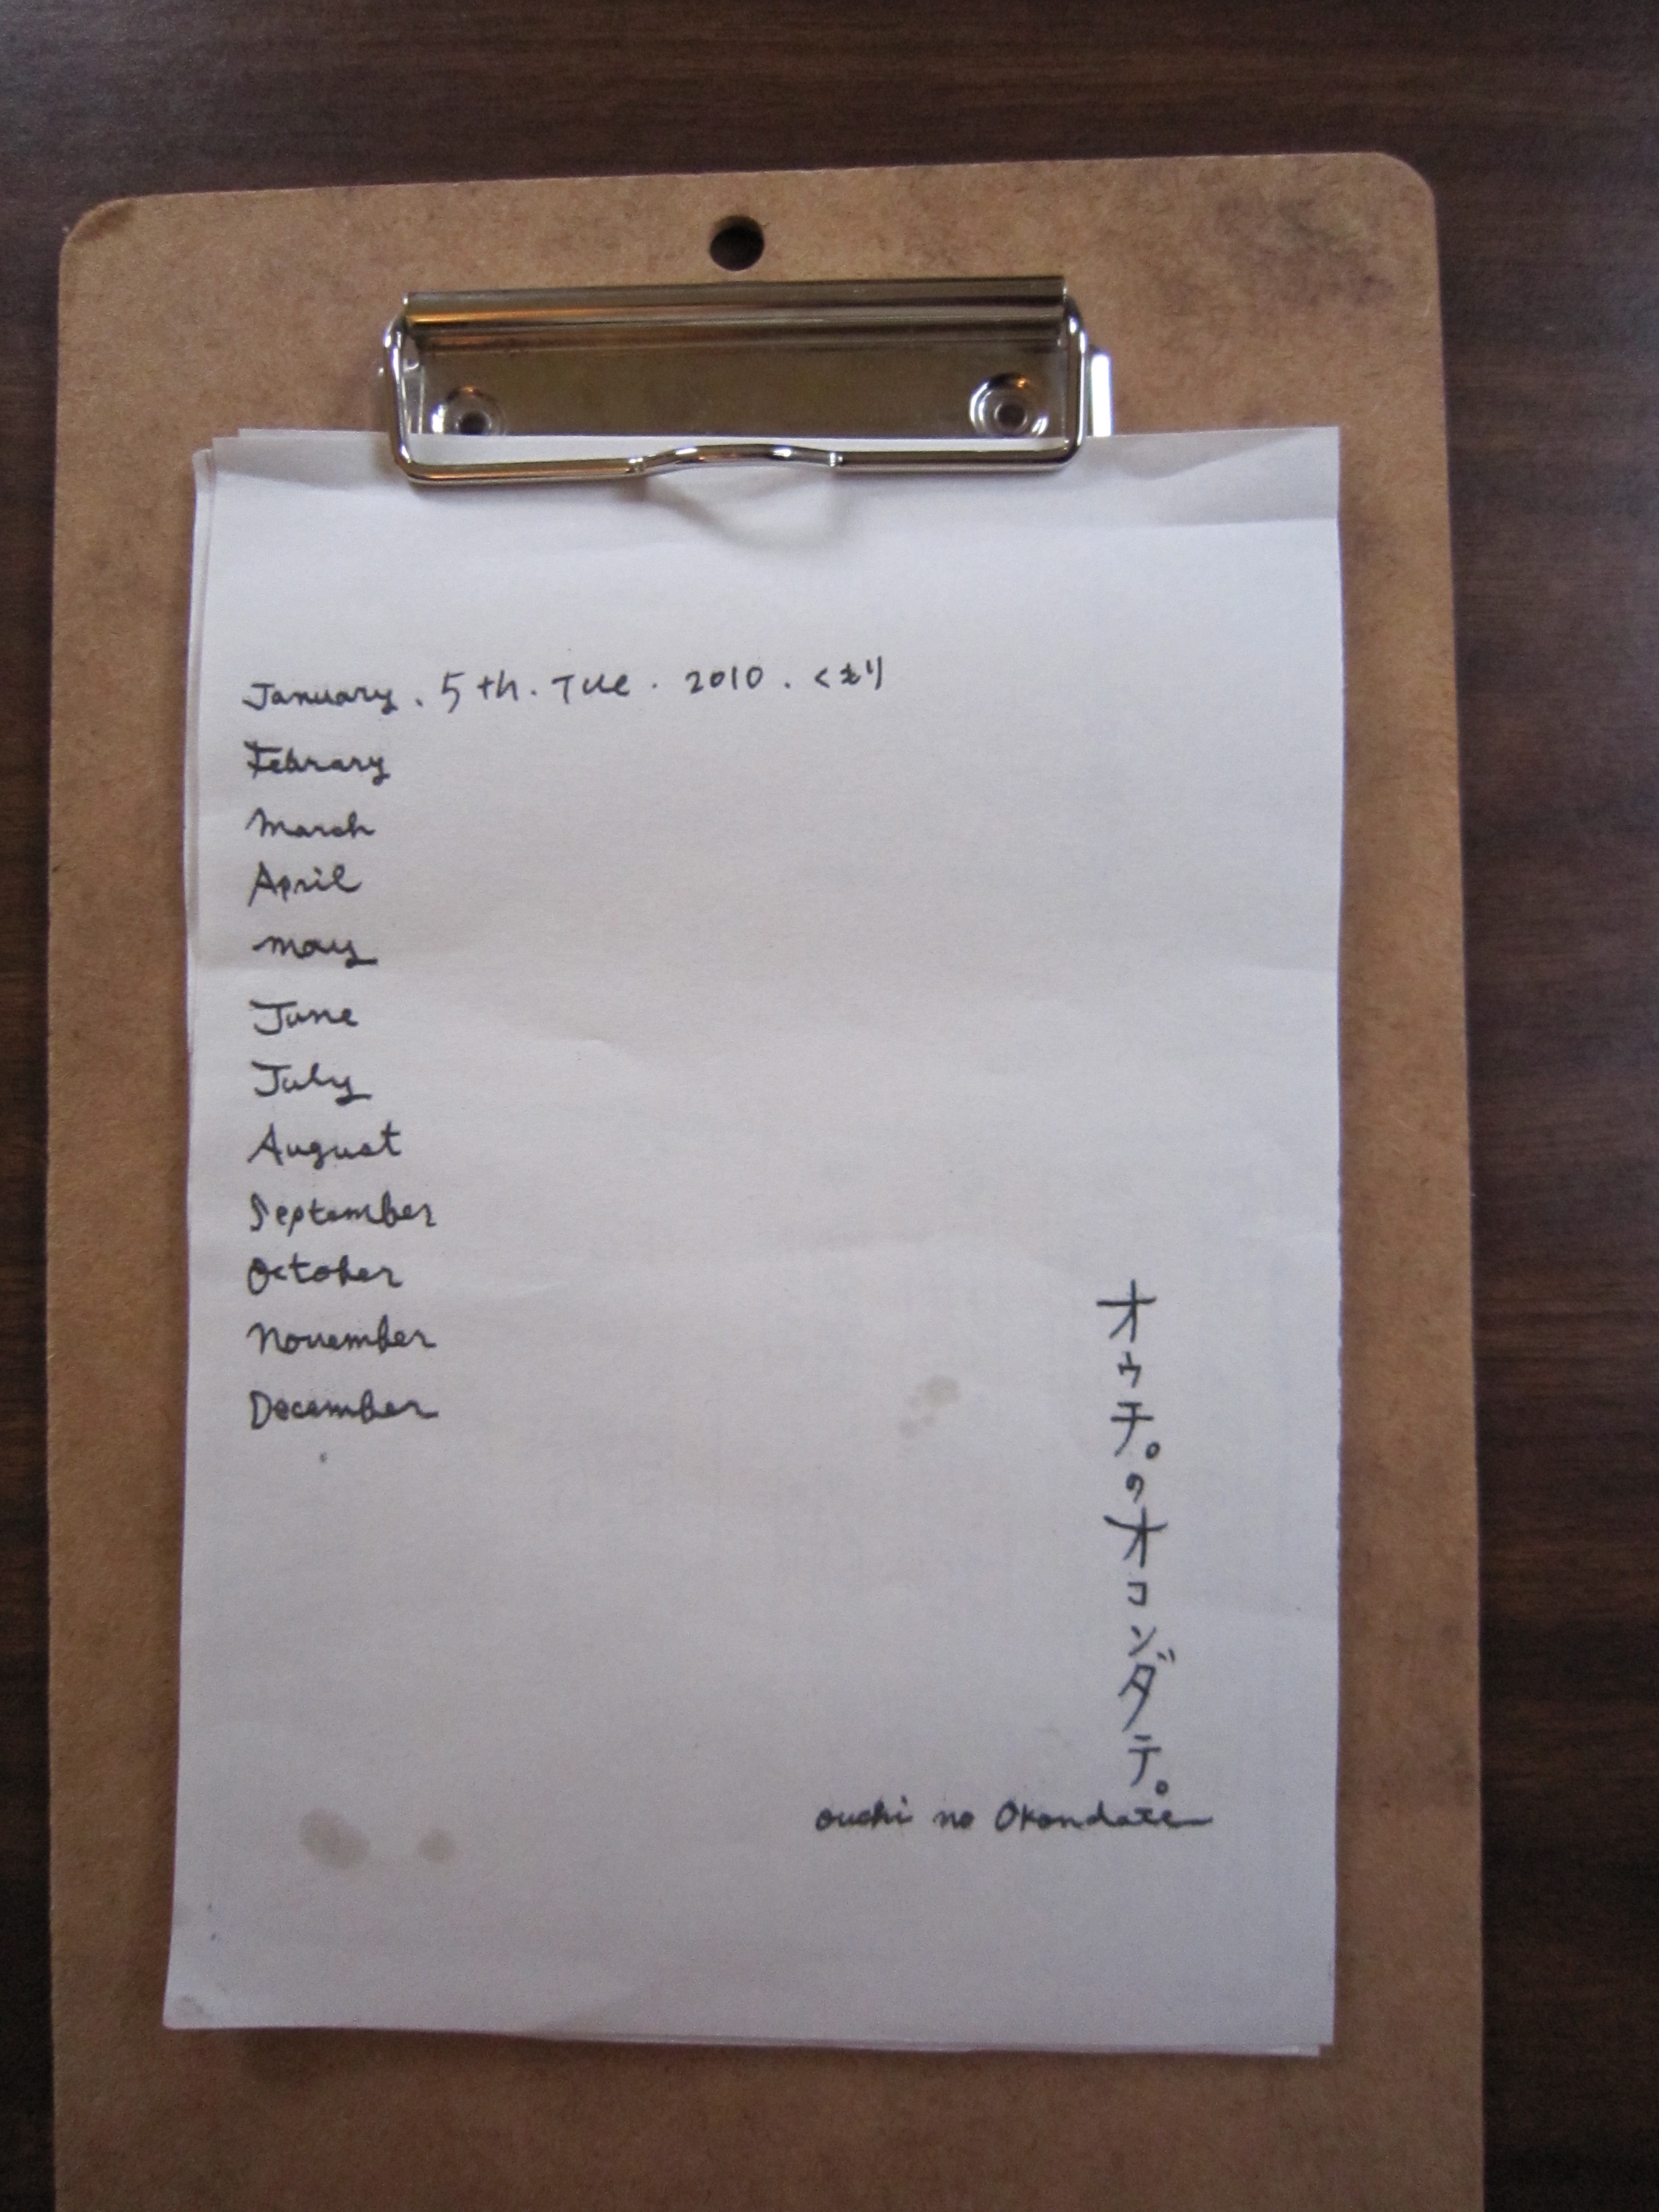 January. 5th. Tue. 2010. くもり
Febrary
March
April
may
June
July
August
September
October
November
December
オウチ。のオコンダテ。
ouchi no Okondate